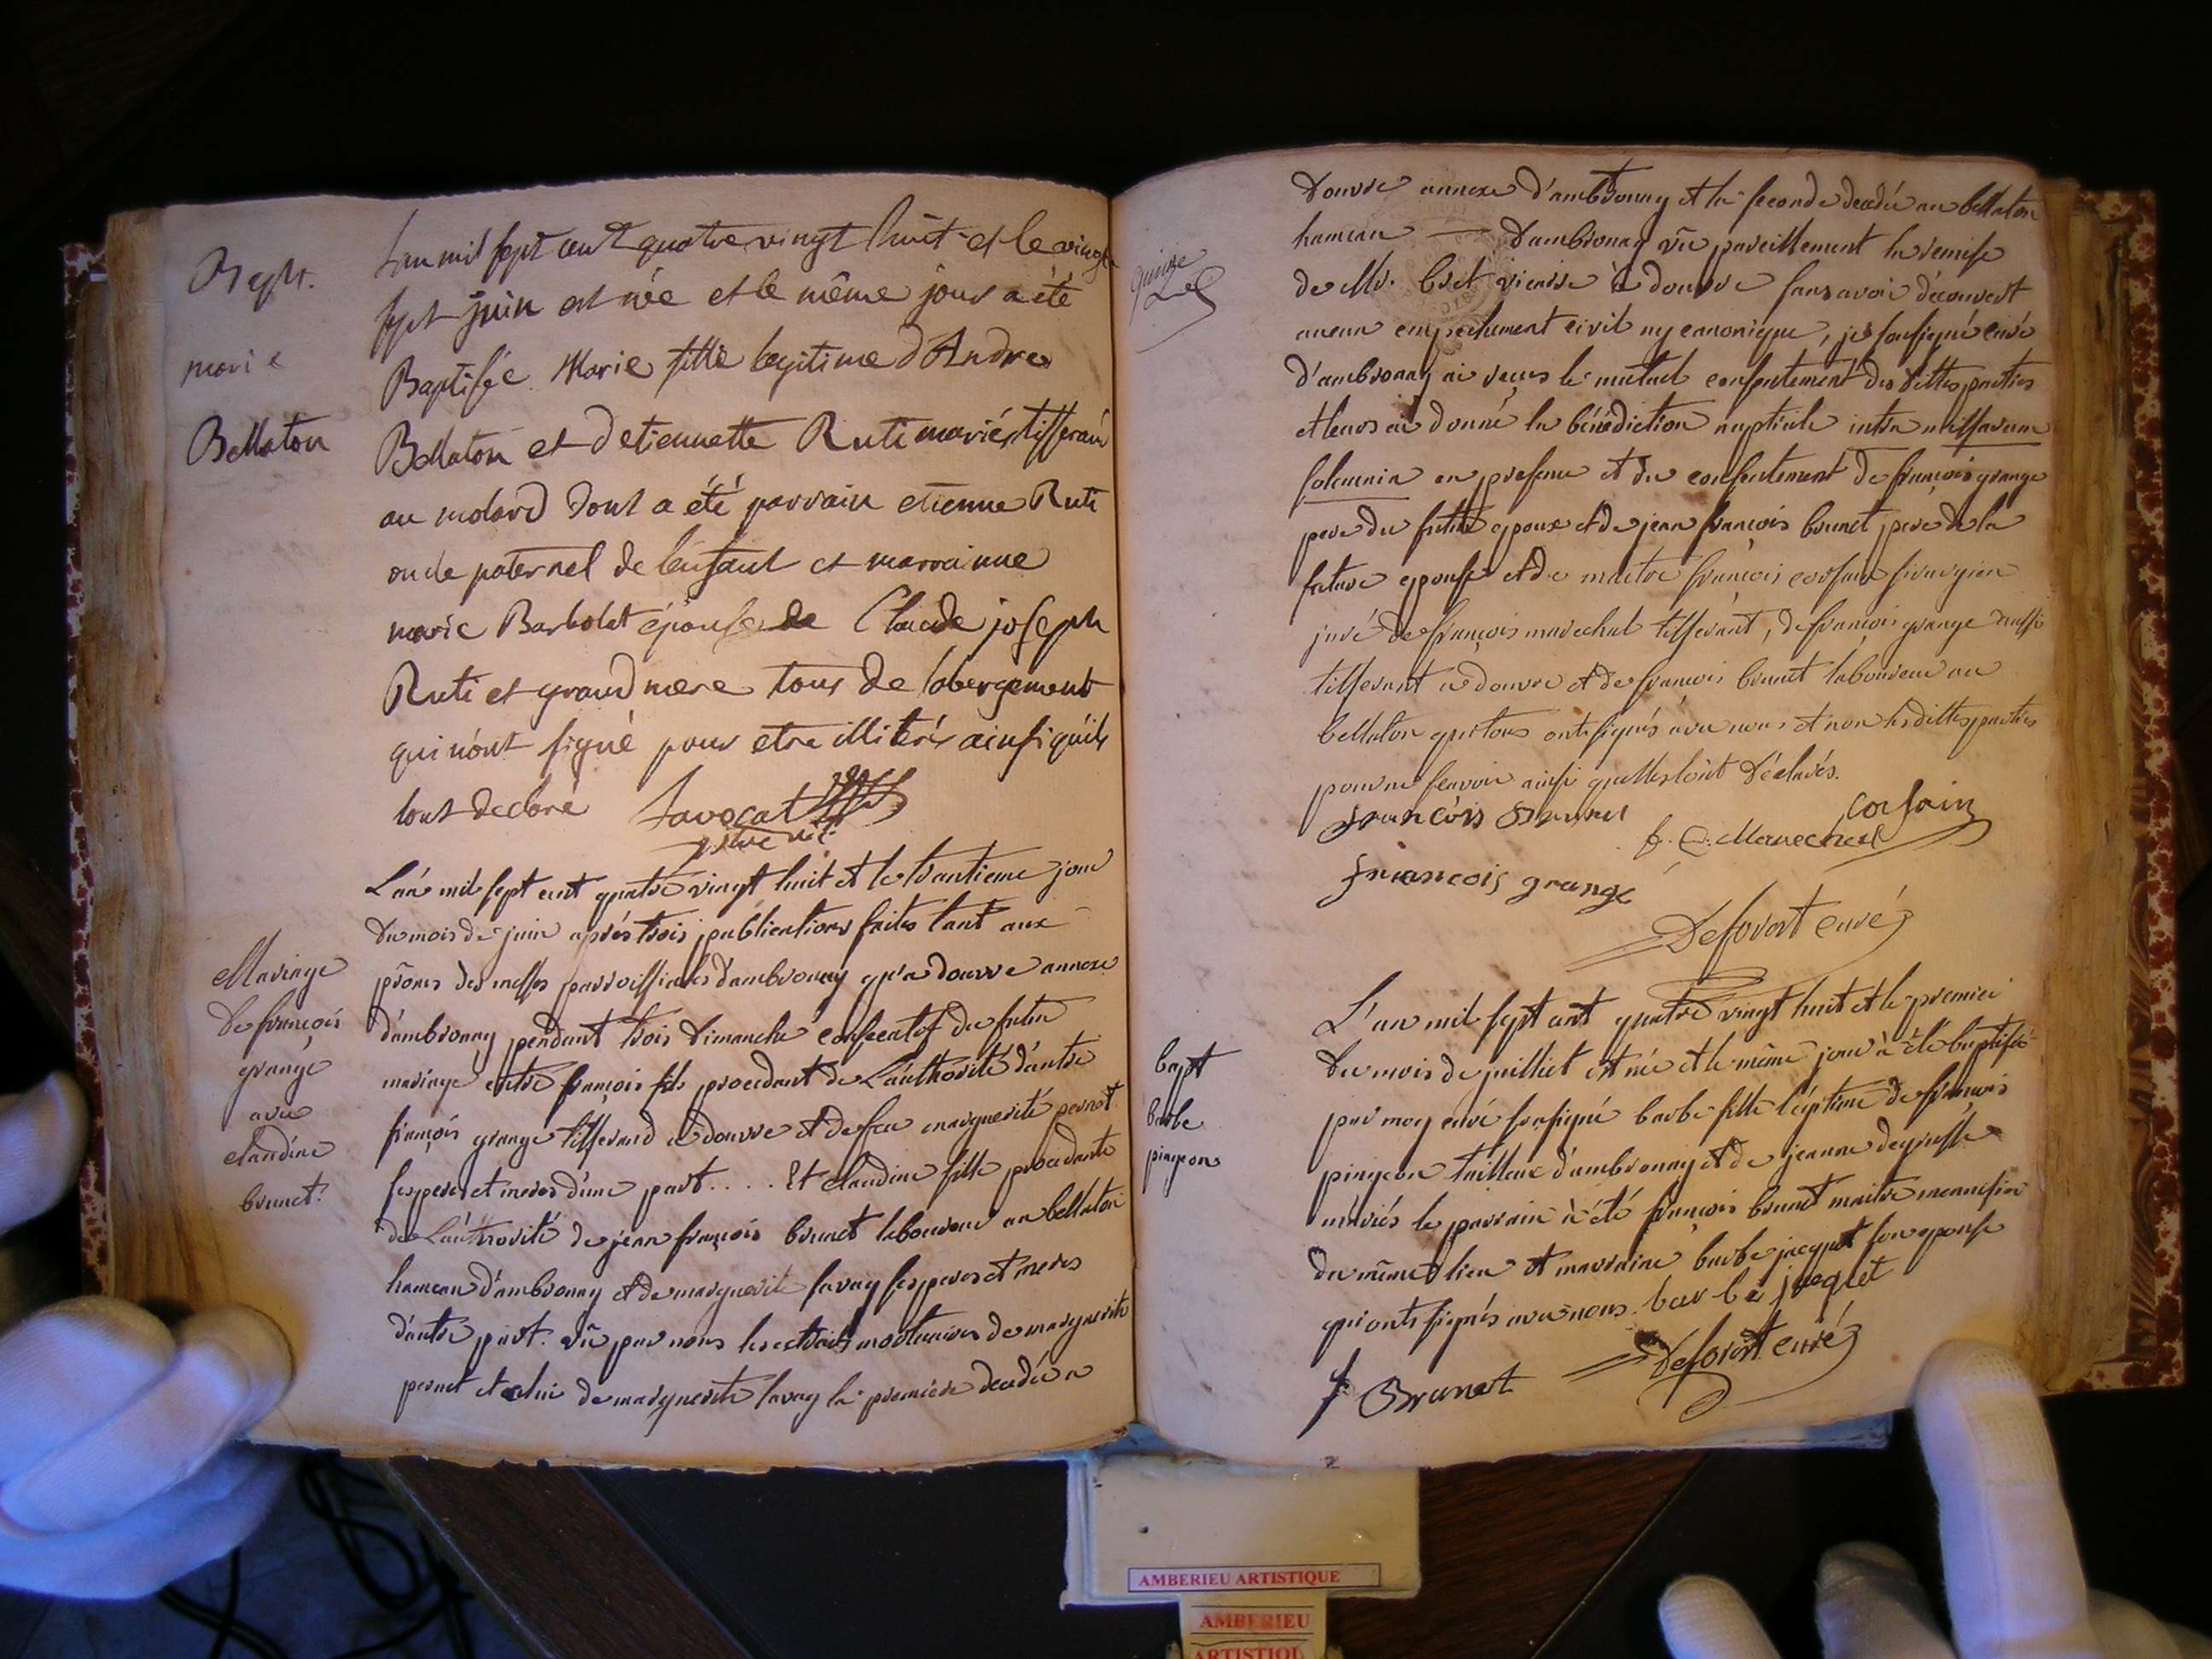 Bapt.
marie
Bellaton
L'an mil sept cent quatre vingt huit et le vingt
sept juin est née et le même jour a été
Baptisée Marie fille legitime d'Andre
Bellaton et d'etiennette Ruti mariés tisserand
au molard dont a été parrain etienne Ruti
oncle paternel de l'enfant et marrainne
marie Barbolat épouse de Claude joseph
Ruti et grand mere tous de l'abergement
qui n'ont signé pour etre illiterés ainsi qu'ils
l'ont declaré Savocat
ptre vic.
Mariage
de françois
grange
avec
claudine
brunet.
L'an mil sept cent quatre vingt huit et le trantieme jour
du mois de juin aprés trois publications faites tant aux
prônes des messes parroissiales d'ambronay qu'a douvre annexe
d'ambronay pendant trois dimanche consecutif du futur
mariage entre françois fils procedant de L'authorité d'autre
françois grange tisserand a douvre et de feu marguerite pernet
ses peres et meres d'une part .... Et claudine fille procedante
de L'authorité de jean françois brunet laboureur au bellaton
hameau d'ambronay et de marguerite savay ses peres et meres
d'autre part. vû par nous les extraits mortuaires de marguerite
pernet et celui de marguerite savay la premiere decedée a
quinze
douvre annexe d'ambronay et la seconde decedée au bellaton
hameau — d'ambronay vû pareillement la remise
de Mr. bret vicaire à douvre sans avoir découvert
aucun empechement civil ny canonique, je soussigné curé
d'ambronay ai reçus le mutuel consentement des dittes parties
et leurs ai donné la bénédiction nuptiale intra missarum
solemnia en presence et du consentement de françois grange
pere du futur epoux et de jean françois brunet pere de la
future epouse et de maitre françois corsain sirurgien
juré de françois marechal tisserant, de françois grange aussi
tisserant a douvre et de françois brunet laboureur au
bellaton qui tous ont signés avec nous et non les dittes parties
pour ne sçavoir ainsi qu'elles l'ont déclarés.
françois Brunet
corsain
f. C. Marechal
françois grange
Deforort curé
bapt
barbe
pingeon
L'an mil sept cent quatre vingt huit et le premier
du mois de juilliet est née et le même jour à été baptisée
par moy curé soussigné barbe fille légitime de françois
pingeon tailleur d'ambronay et de jeanne degrusse
mariés le parrain à été françois brunet maitre menusier
du même lieu et marraine barbe jacquet son epouse
qui ont signés avec nous. barbe jacquet
f Brunet
Deforort curé
AMBERIEU ARTISTIQUE
AMBERIEU
ARTISTIQU